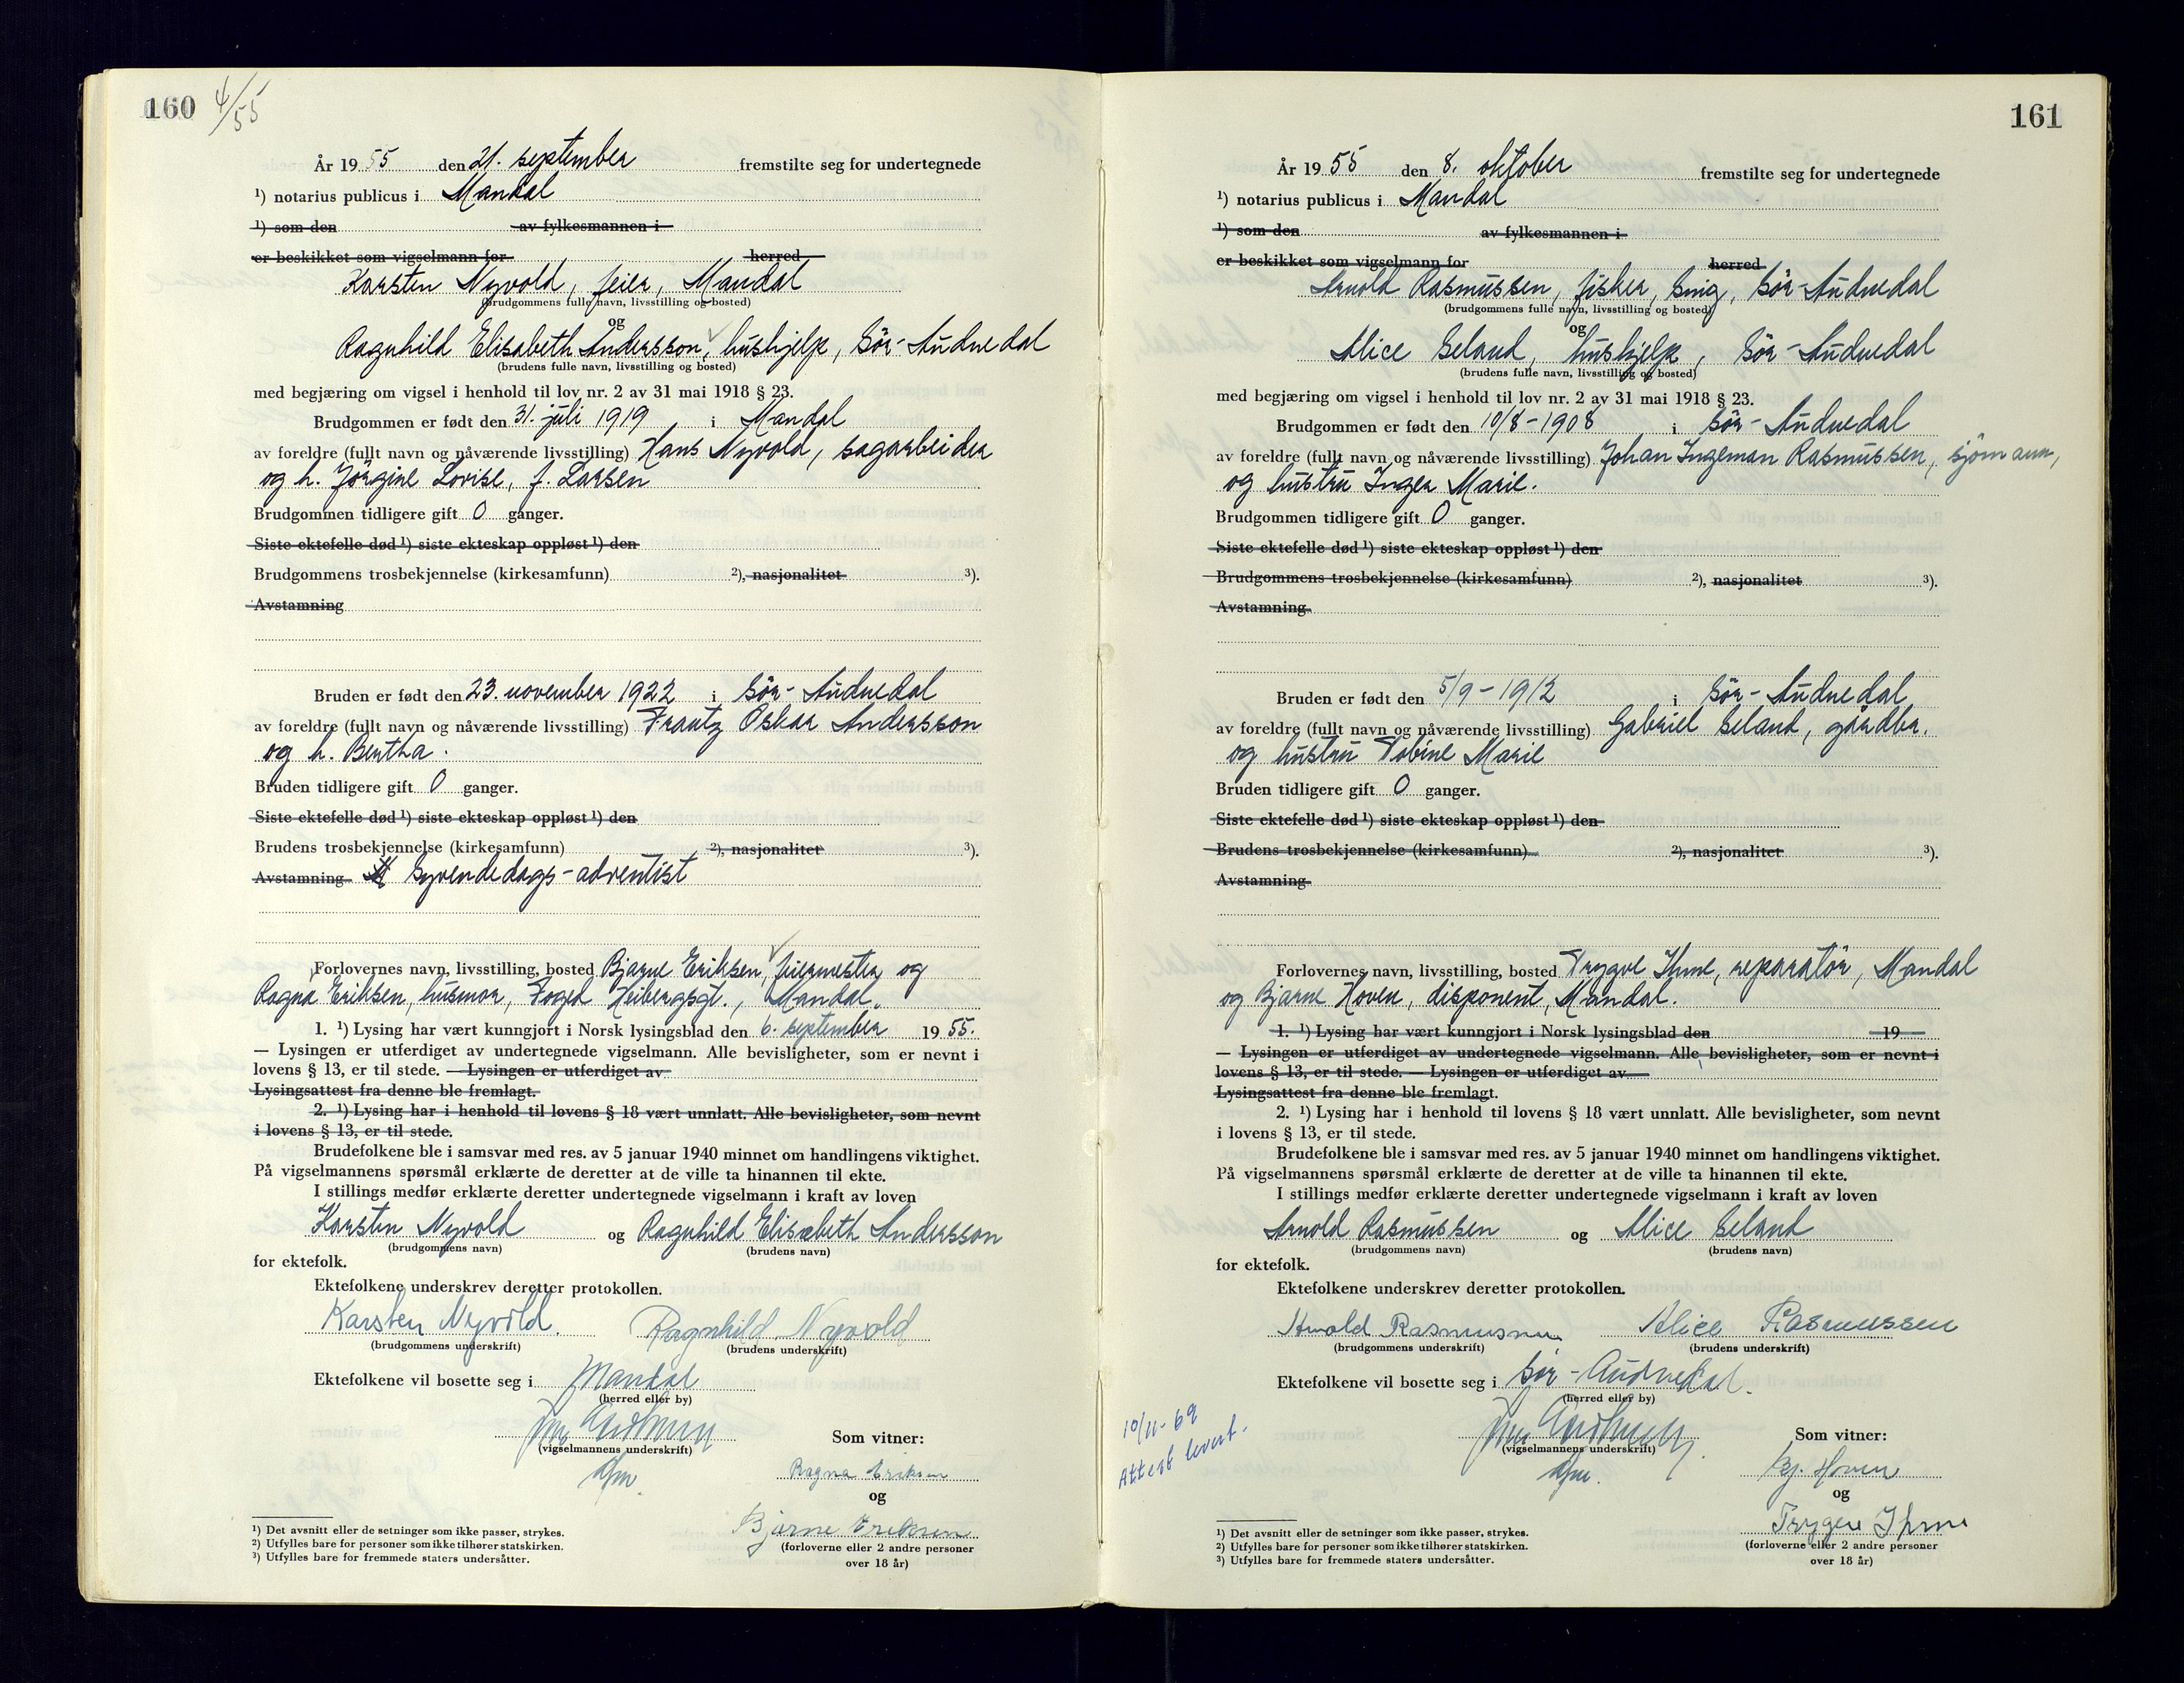 160 4/55
År 1955 den 21. september fremstilte seg for undertegnede
¹) notarius publicus i Mandal
¹) som den av fylkesmannen i
er beskikket som vigselmann for herred
Karsten Nyvold, feier, Mandal
(brudgommens fulle navn, livsstilling og bosted)
og
Ragnhild Elisabeth Andersson, hushjelp, Sör-Audnedal
(brudens fulle navn, livsstilling og bosted)
med begjæring om vigsel i henhold til lov nr. 2 av 31 mai 1918 § 23.
Brudgommen er født den 31. juli 1919 i Mandal
av foreldre (fullt navn og nåværende livsstilling) Hans Nyvold, sagarbeider
og h. Jörgine Lovise, f. Larsen
Brudgommen tidligere gift 0 ganger.
Siste ektefelle død ¹) siste ekteskap oppløst ¹) den
Brudgommens trosbekjennelse (kirkesamfunn) ²), nasjonalitet ³).
Avstamning
Bruden er født den 23. november 1922 i Sör-Audnedal
av foreldre (fullt navn og nåværende livsstilling) Frantz Oskar Andersson
og h. Bertha.
Bruden tidligere gift 0 ganger.
Siste ektefelle død ¹) siste ekteskap oppløst ¹) den
Brudens trosbekjennelse (kirkesamfunn) ²), nasjonalitet ³).
Avstamning Syvendedags-adventist
Forlovernes navn, livsstilling, bosted Bjarne Eriksen, feiermester og
Ragna Eriksen, husmor, Foged Heibergsgt., Mandal.
1. ¹) Lysing har vært kunngjort i Norsk lysingsblad den 6. september 1955.
— Lysingen er utferdiget av undertegnede vigselmann. Alle bevisligheter, som er nevnt i
lovens § 13, er til stede. — Lysingen er utferdiget av
Lysingsattest fra denne ble fremlagt.
2. ¹) Lysing har i henhold til lovens § 18 vært unnlatt. Alle bevisligheter, som nevnt
i lovens § 13, er til stede.
Brudefolkene ble i samsvar med res. av 5 januar 1940 minnet om handlingens viktighet.
På vigselmannens spørsmål erklærte de deretter at de ville ta hinannen til ekte.
I stillings medfør erklærte deretter undertegnede vigselmann i kraft av loven
Karsten Nyvold og Ragnhild Elisabeth Andersson
(brudgommens navn) (brudens navn)
for ektefolk.
Ektefolkene underskrev deretter protokollen.
Karsten Nyvold. Ragnhild Nyvold
(brudgommens underskrift) (brudens underskrift)
Ektefolkene vil bosette seg i Mandal
(herred eller by)
(vigselmannens underskrift) Som vitner:
Ragna Eriksen
og
Bjarne Eriksen
(forloverne eller 2 andre personer
over 18 år)
¹) Det avsnitt eller de setninger som ikke passer, strykes.
²) Utfylles bare for personer som ikke tilhører statskirken.
³) Utfylles bare for fremmede staters undersåtter.
161
År 1955 den 8. oktober fremstilte seg for undertegnede
¹) notarius publicus i Mandal
¹) som den av fylkesmannen i
er beskikket som vigselmann for herred
Arnold Rasmussen, fisker, Snig, Sör-Audnedal
(brudgommens fulle navn, livsstilling og bosted)
og
Alice Seland, hushjelp, Sör-Audnedal
(brudens fulle navn, livsstilling og bosted)
med begjæring om vigsel i henhold til lov nr. 2 av 31 mai 1918 § 23.
Brudgommen er født den 10/8-1908 i Sör-Audnedal
av foreldre (fullt navn og nåværende livsstilling) Johan Ingeman Rasmussen, sjömann,
og hustru Inger Marie.
Brudgommen tidligere gift 0 ganger.
Siste ektefelle død ¹) siste ekteskap oppløst ¹) den
Brudgommens trosbekjennelse (kirkesamfunn) ²), nasjonalitet ³).
Avstamning
Bruden er født den 5/9-1912 i Sör-Audnedal
av foreldre (fullt navn og nåværende livsstilling) Gabriel Seland, gårdbr.
og hustru Tobine Marie
Bruden tidligere gift 0 ganger.
Siste ektefelle død ¹) siste ekteskap oppløst ¹) den
Brudens trosbekjennelse (kirkesamfunn) ²), nasjonalitet ³).
Avstamning
Forlovernes navn, livsstilling, bosted Trygve Ihme, reparatör, Mandal
og Bjarne Hoven, disponent, Mandal.
1. ¹) Lysing har vært kunngjort i Norsk lysingsblad den 19
— Lysingen er utferdiget av undertegnede vigselmann. Alle bevisligheter, som er nevnt i
lovens § 13, er til stede. — Lysingen er utferdiget av
Lysingsattest fra denne ble fremlagt.
2. ¹) Lysing har i henhold til lovens § 18 vært unnlatt. Alle bevisligheter, som nevnt
i lovens § 13, er til stede.
Brudefolkene ble i samsvar med res. av 5 januar 1940 minnet om handlingens viktighet.
På vigselmannens spørsmål erklærte de deretter at de ville ta hinannen til ekte.
I stillings medfør erklærte deretter undertegnede vigselmann i kraft av loven
Arnold Rasmussen og Alice Seland
(brudgommens navn) (brudens navn)
for ektefolk.
Ektefolkene underskrev deretter protokollen.
Arnold Rasmussen Alice Rasmussen
(brudgommens underskrift) (brudens underskrift)
Ektefolkene vil bosette seg i Sör-Audnedal.
(herred eller by)
10/11-69
Attest levert.
(vigselmannens underskrift) Som vitner:
Bj. Hoven
og
Trygve Ihme
(forloverne eller 2 andre personer
over 18 år)
¹) Det avsnitt eller de setninger som ikke passer, strykes.
²) Utfylles bare for personer som ikke tilhører statskirken.
³) Utfylles bare for fremmede staters undersåtter.